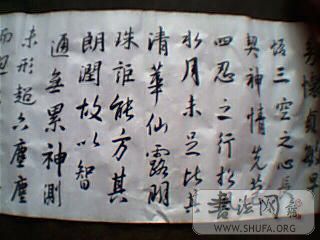 懷貞敏早
悟三空之心長
契神情先苞
四忍之行松
水月未足比其
清華仙露明
珠詎能方其
朗潤故以智
通無累神測
未形超六塵塵
而迥
書法網
WWW.SHUFA.ORG